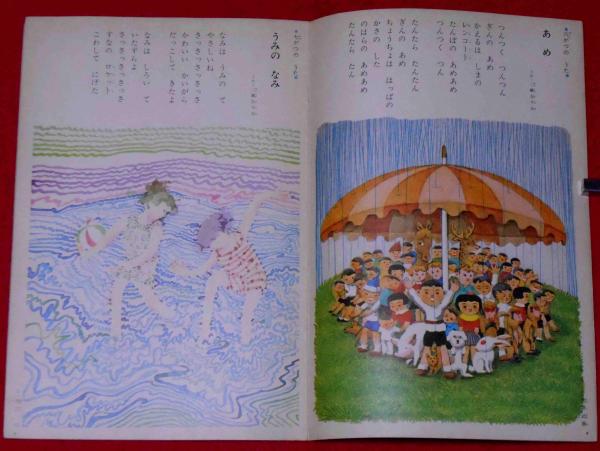 ★六がつの うた★
あめ
つんつく つんつん
ぎんの あめ
かえるは しまの
レンコート
たんぼの あめあめ
つんつく つん
たんたら たんたん
ぎんの あめ
ちょうちょは はっぱの
かさの した
のはらの あめあめ
たんたら たん
★七がつの うた★
うみの なみ
なみは うみの て
やさしいね
さっさっさっさっさ
かわいい かいがら
だっこして きたよ
なみは しろい て
いたずらよ
さっさっさっさっさ
すなの ロケット
こわして にげた